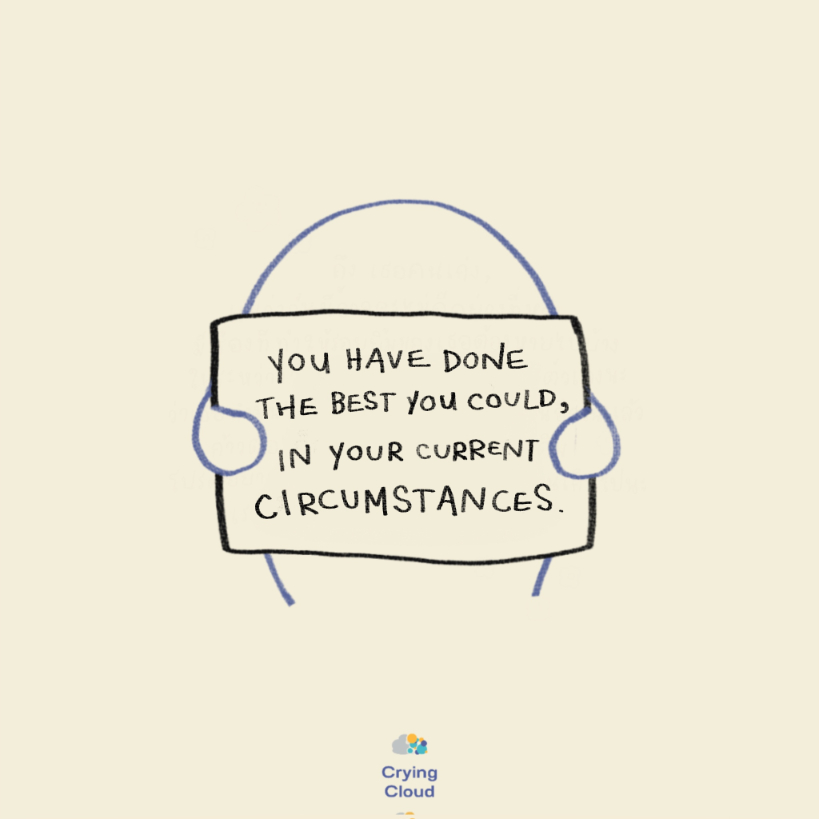 YOU HAVE DONE
THE BEST YOU COULD,
IN YOUR CURRENT
CIRCUMSTANCES.
Crying
Cloud